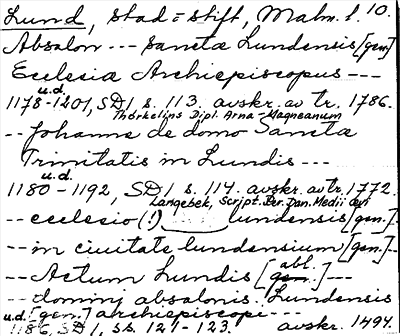 Lund, stad = stift, Malm. l. 10.
Absalon --- Sanctæ Lundensis [gen]
Ecclesiæ Archiepiscopus ---
u.d.
1178-1201, SD1 s. 113. avskr. av tr. 1786.
Thorkelins Dipl. Arna-Magneanum
-- Johanne de domo Sanctæ
Trinitatis in Lundis ---
u.d.
1180-1192, SD1 s. 114. avskr. av tr. 1772.
Langebek, Script. Rer. Dan. Medii Ævi
-- ecclesio (!) lundensis [gen.]
-- in ciuitate lundensium [gen.] --
-- Actum Lundis [gen. abl.] ---
-- dominj absalonis. Lundensis
u.d. [gen.] archiepiscopi ---
1186, SD1, ss. 121-123. avskr. 1494.